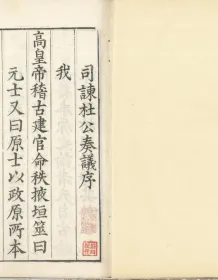 司諫杜公奏議序
我
高皇帝稽古建官命秩掖垣筮曰
元士又曰原士以政原所本